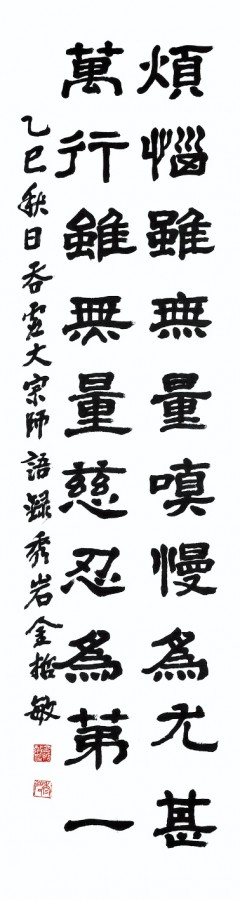 煩惱雖無量嗔慢為尤甚
萬行雖無量慈忍為第一
乙巳秋日吞虛大宗師語錄秀岩金哲敏